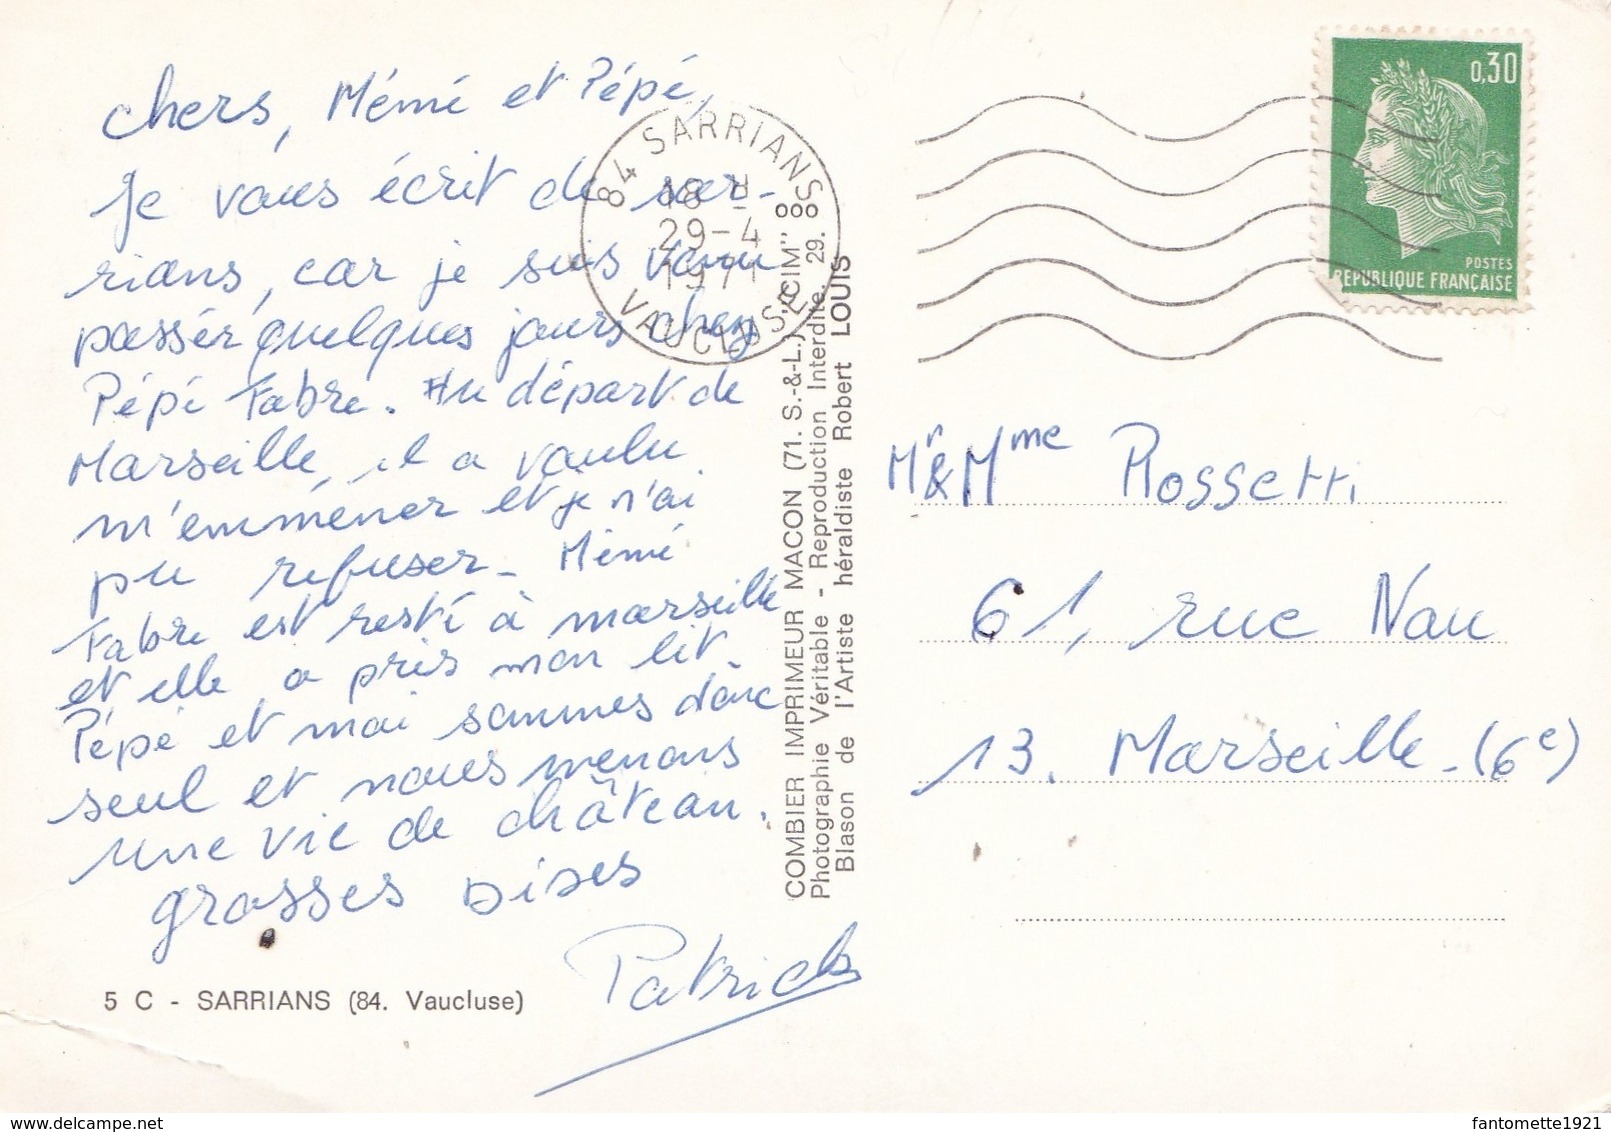 chers, Mémé et Pépé,
Je vous écrit de Sar-
rians, car je suis venu
passér quelques jours chez
Pépé Fabre. Au départ de
Marseille, il a voulu
m'emméner et je n'ai
pu refuser_ Mémé
Fabre est resté à marseille
et elle a pris mon lit_
Pépé et moi sommes donc
seul et nous menons
une vie de château.
grosses bises
Patrick
5 C - SARRIANS (84. Vaucluse)
84 SARRIANS
18 H
29-4
1971
VAUCLUSE
COMBIER IMPRIMEUR MACON (71. S.-&-L.) "CIM"
Photographie Véritable - Reproduction Interdite. 29. 88
Blason de l'Artiste héraldiste Robert LOUIS
0,30
POSTES
REPUBLIQUE FRANÇAISE
Mr & Mme Rossetti
61, rue Nau
13. Marseille_(6e)
fantomette1921